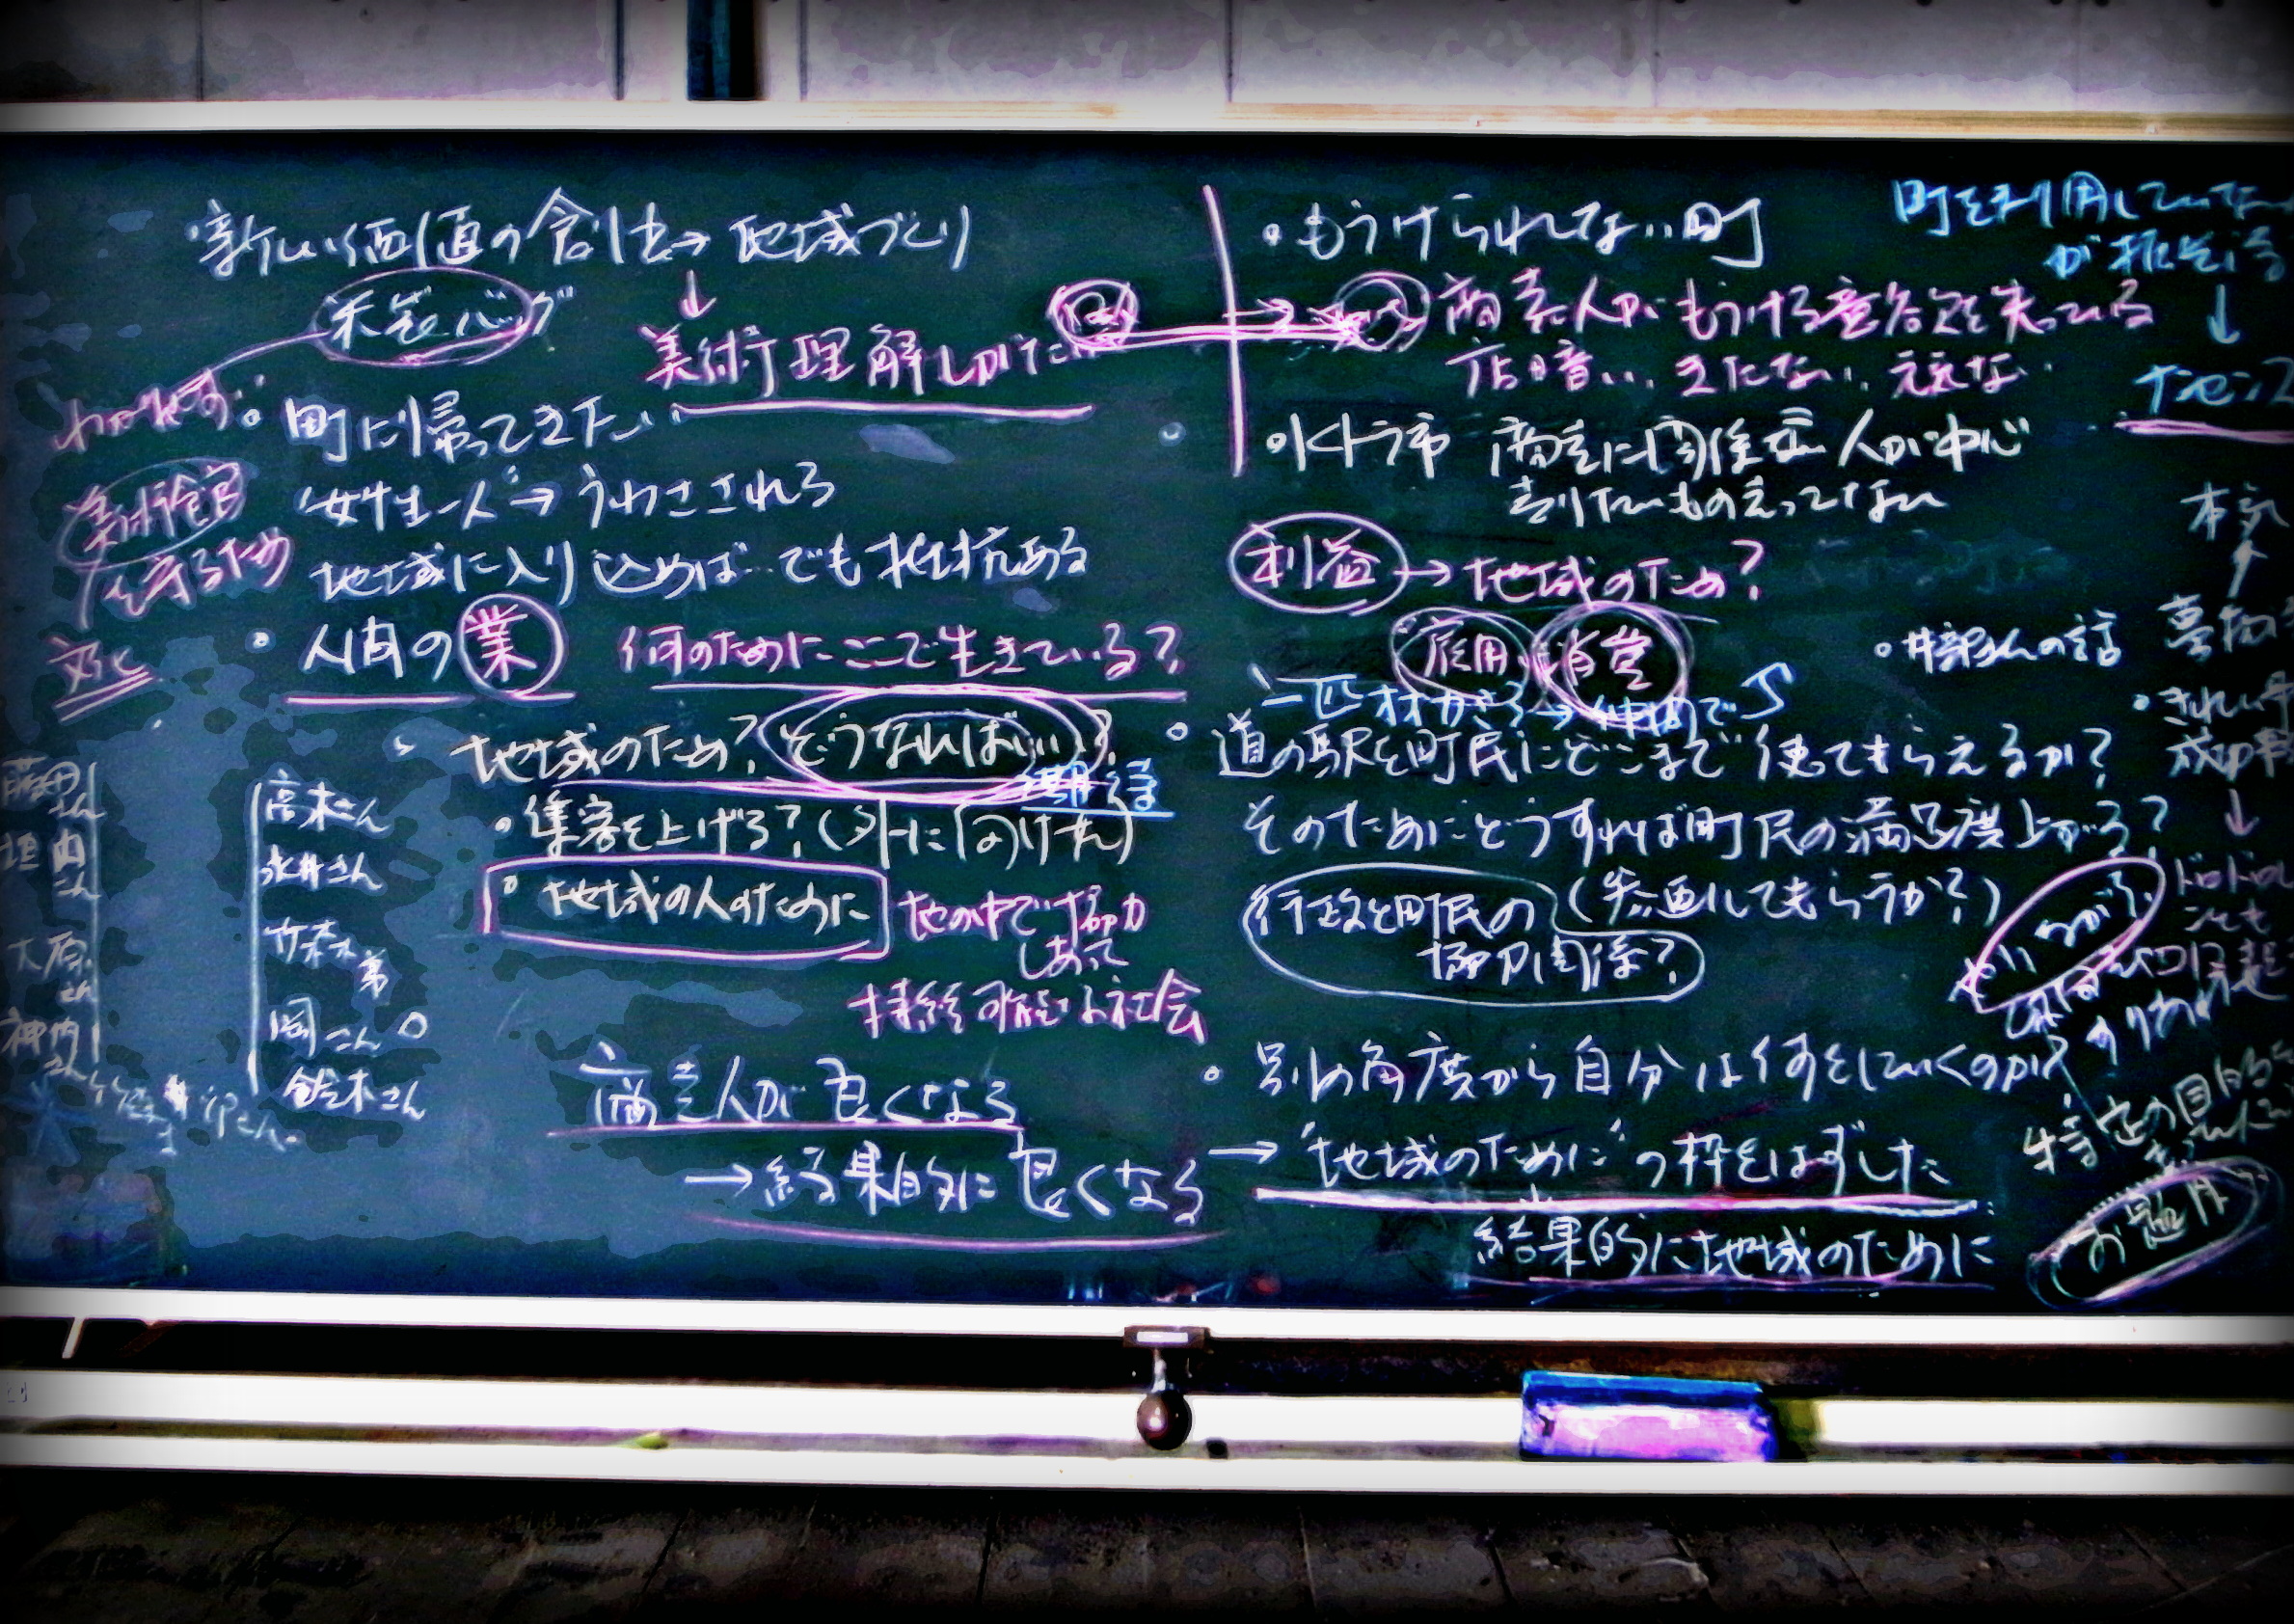 新しい価値の創出→地域づくり
米袋バッグ
↓
美術理解しがたい
わかれず
町に帰ってきたい
美術館
"女性一人"→うわさされる
を守るため
地域に入り込めば でも抵抗ある
文化
人間の業 何のためにここで生きている?
地域のため? どうなればいい?
集客を上げる?(外に向けた)
地域の人のために
地の中で協力
しあって
持続可能な社会
商売人が良くなる
→結果的に良くなる
藤田さん
垣内さん
大原さん
神内さん
高木さん
永井さん
岡さん
鈴木さん
もうけられない町
商売人がもうける意欲を失っている
店暗い、きたない、元気ない
軽トラ市 商売に関係ない人が中心
売りたいもの売ってない
利益→地域のため?
雇用
道の駅を町民にどこまで使てもらえるか?
そのためにどうすれば町民の満足度上がる?
行政と町民の
協力関係?
(参画してもらうか?)
別の角度から自分は何をしていくのか?
→"地域のために"の枠をはずした
結果的に地域のために
町を利用して
↓
ナンセンス
本気
さんの話
きれい
↓
ドロドロ
特定の目的